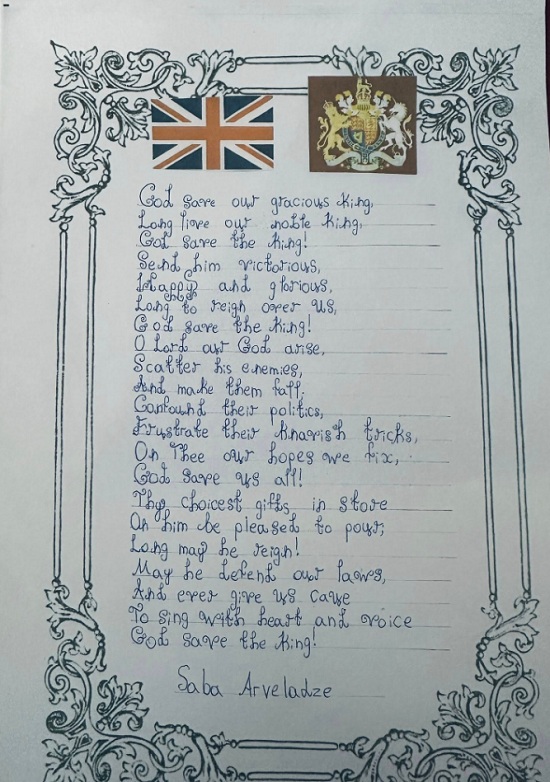 God save our gracious King,
Long live our noble King,
God save the King!
Send him victorious,
Happy and glorious,
Long to reign over us,
God save the King!
O Lord our God arise,
Scatter his enemies,
And make them fall.
Confound their politics,
Frustrate their knavish tricks,
On Thee our hopes we fix,
God save us all!
Thy choicest gifts in store
On him be pleased to pour;
Long may he reign!
May he defend our laws,
And ever give us cause
To sing with heart and voice
God save the King!
Saba Arveladze